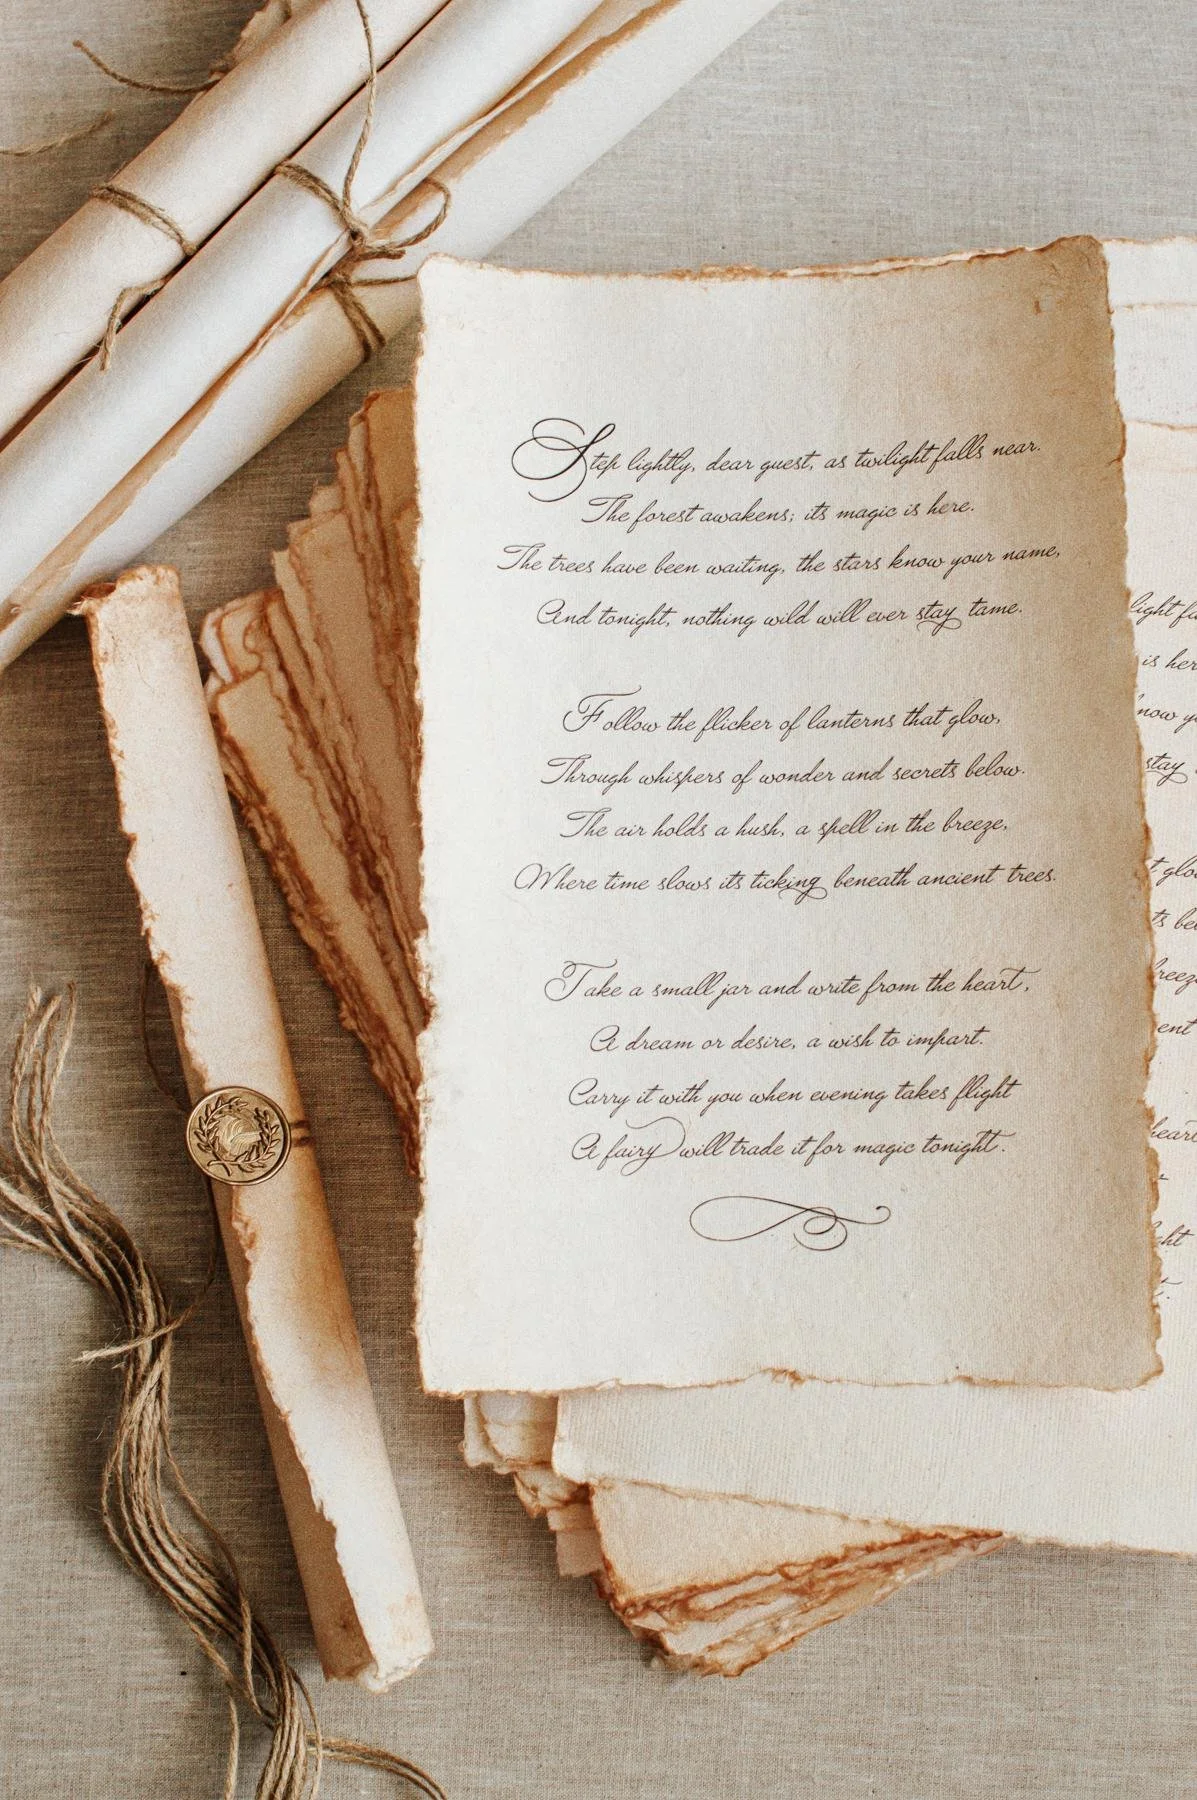 Step lightly, dear guest, as twilight falls near.
The forest awakens; its magic is here.
The trees have been waiting, the stars know your name,
And tonight, nothing wild will ever stay tame.
Follow the flicker of lanterns that glow,
Through whispers of wonder and secrets below.
The air holds a hush, a spell in the breeze,
Where time slows its ticking beneath ancient trees.
Take a small jar and write from the heart,
A dream or desire, a wish to impart.
Carry it with you when evening takes flight
A fairy will trade it for magic tonight.
light
is
know
stay